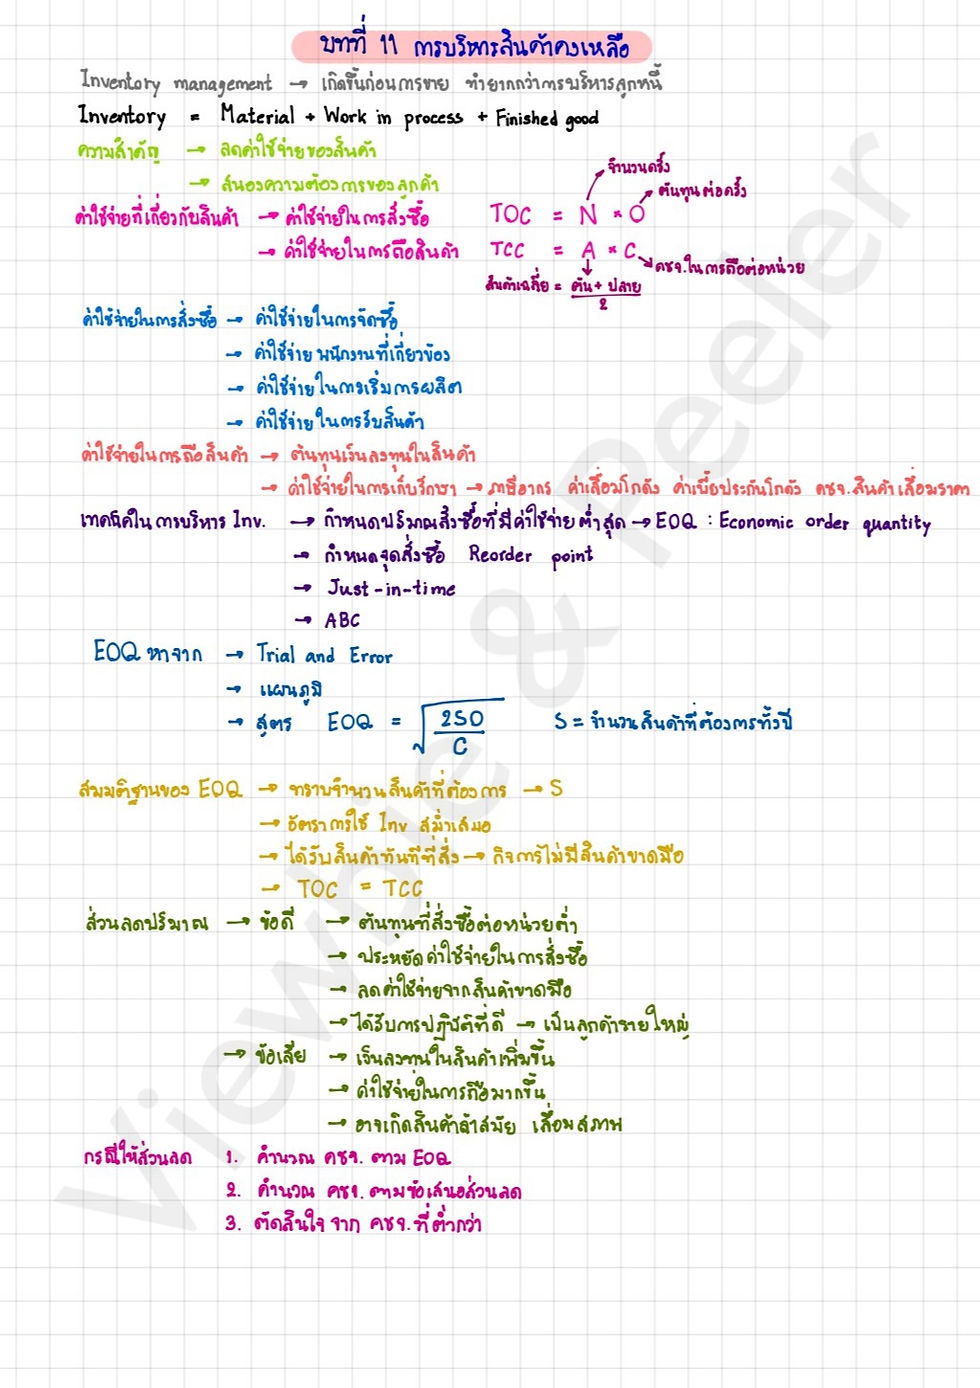 บทที่ 11 การบริหารสินค้าคงเหลือ
Inventory management → เกิดขึ้นก่อนการขาย ทำยากกว่าการบริหารลูกหนี้
Inventory = Material + Work in process + Finished good
ความสำคัญ → ลดค่าใช้จ่ายของสินค้า
→ สนองความต้องการของลูกค้า
จำนวนครั้ง
ต้นทุนต่อครั้ง
ค่าใช้จ่ายที่เกี่ยวกับสินค้า → ค่าใช้จ่ายในการสั่งซื้อ TOC = N × O
→ ค่าใช้จ่ายในการถือสินค้า TCC = A × C
คชจ.ในการถือต่อหน่วย
สินค้าเฉลี่ย = ต้น + ปลาย
2
ค่าใช้จ่ายในการสั่งซื้อ → ค่าใช้จ่ายในการจัดซื้อ
→ ค่าใช้จ่ายพนักงานที่เกี่ยวข้อง
→ ค่าใช้จ่ายในการเริ่มการผลิต
→ ค่าใช้จ่ายในการรับสินค้า
ค่าใช้จ่ายในการถือสินค้า → ต้นทุนเงินลงทุนในสินค้า
→ ค่าใช้จ่ายในการเก็บรักษา → ภาษีอากร ค่าเสื่อมโกดัง ค่าเบี้ยประกันโกดัง คชจ.สินค้าเสื่อมราคา
เทคนิคในการบริหาร Inv. → กำหนดปริมาณสั่งซื้อที่มีค่าใช้จ่ายต่ำสุด → EOQ : Economic order quantity
→ กำหนดจุดสั่งซื้อ Reorder point
→ Just-in-time
→ ABC
EOQ หาจาก → Trial and Error
→ แผนภูมิ
→ สูตร EOQ = √2SO S = จำนวนสินค้าที่ต้องการทั้งปี
C
สมมติฐานของ EOQ → ทราบจำนวนสินค้าที่ต้องการ → S
→ อัตราการใช้ Inv สม่ำเสมอ
→ ได้รับสินค้าทันทีที่สั่ง → กิจการไม่มีสินค้าขาดมือ
→ TOC = TCC
ส่วนลดปริมาณ → ข้อดี → ต้นทุนที่สั่งซื้อต่อหน่วยต่ำ
→ ประหยัดค่าใช้จ่ายในการสั่งซื้อ
→ ลดค่าใช้จ่ายจากสินค้าขาดมือ
→ ได้รับการปฏิบัติที่ดี → เป็นลูกค้ารายใหญ่
→ ข้อเสีย → เงินลงทุนในสินค้าเพิ่มขึ้น
→ ค่าใช้จ่ายในการถือมากขึ้น
→ อาจเกิดสินค้าล้าสมัย เสื่อมสภาพ
กรณีให้ส่วนลด 1. คำนวณ คชจ. ตาม EOQ
2. คำนวณ คชจ. ตามข้อเสนอส่วนลด
3. ตัดสินใจ จาก คชจ. ที่ต่ำกว่า
Viewbie & Peeler